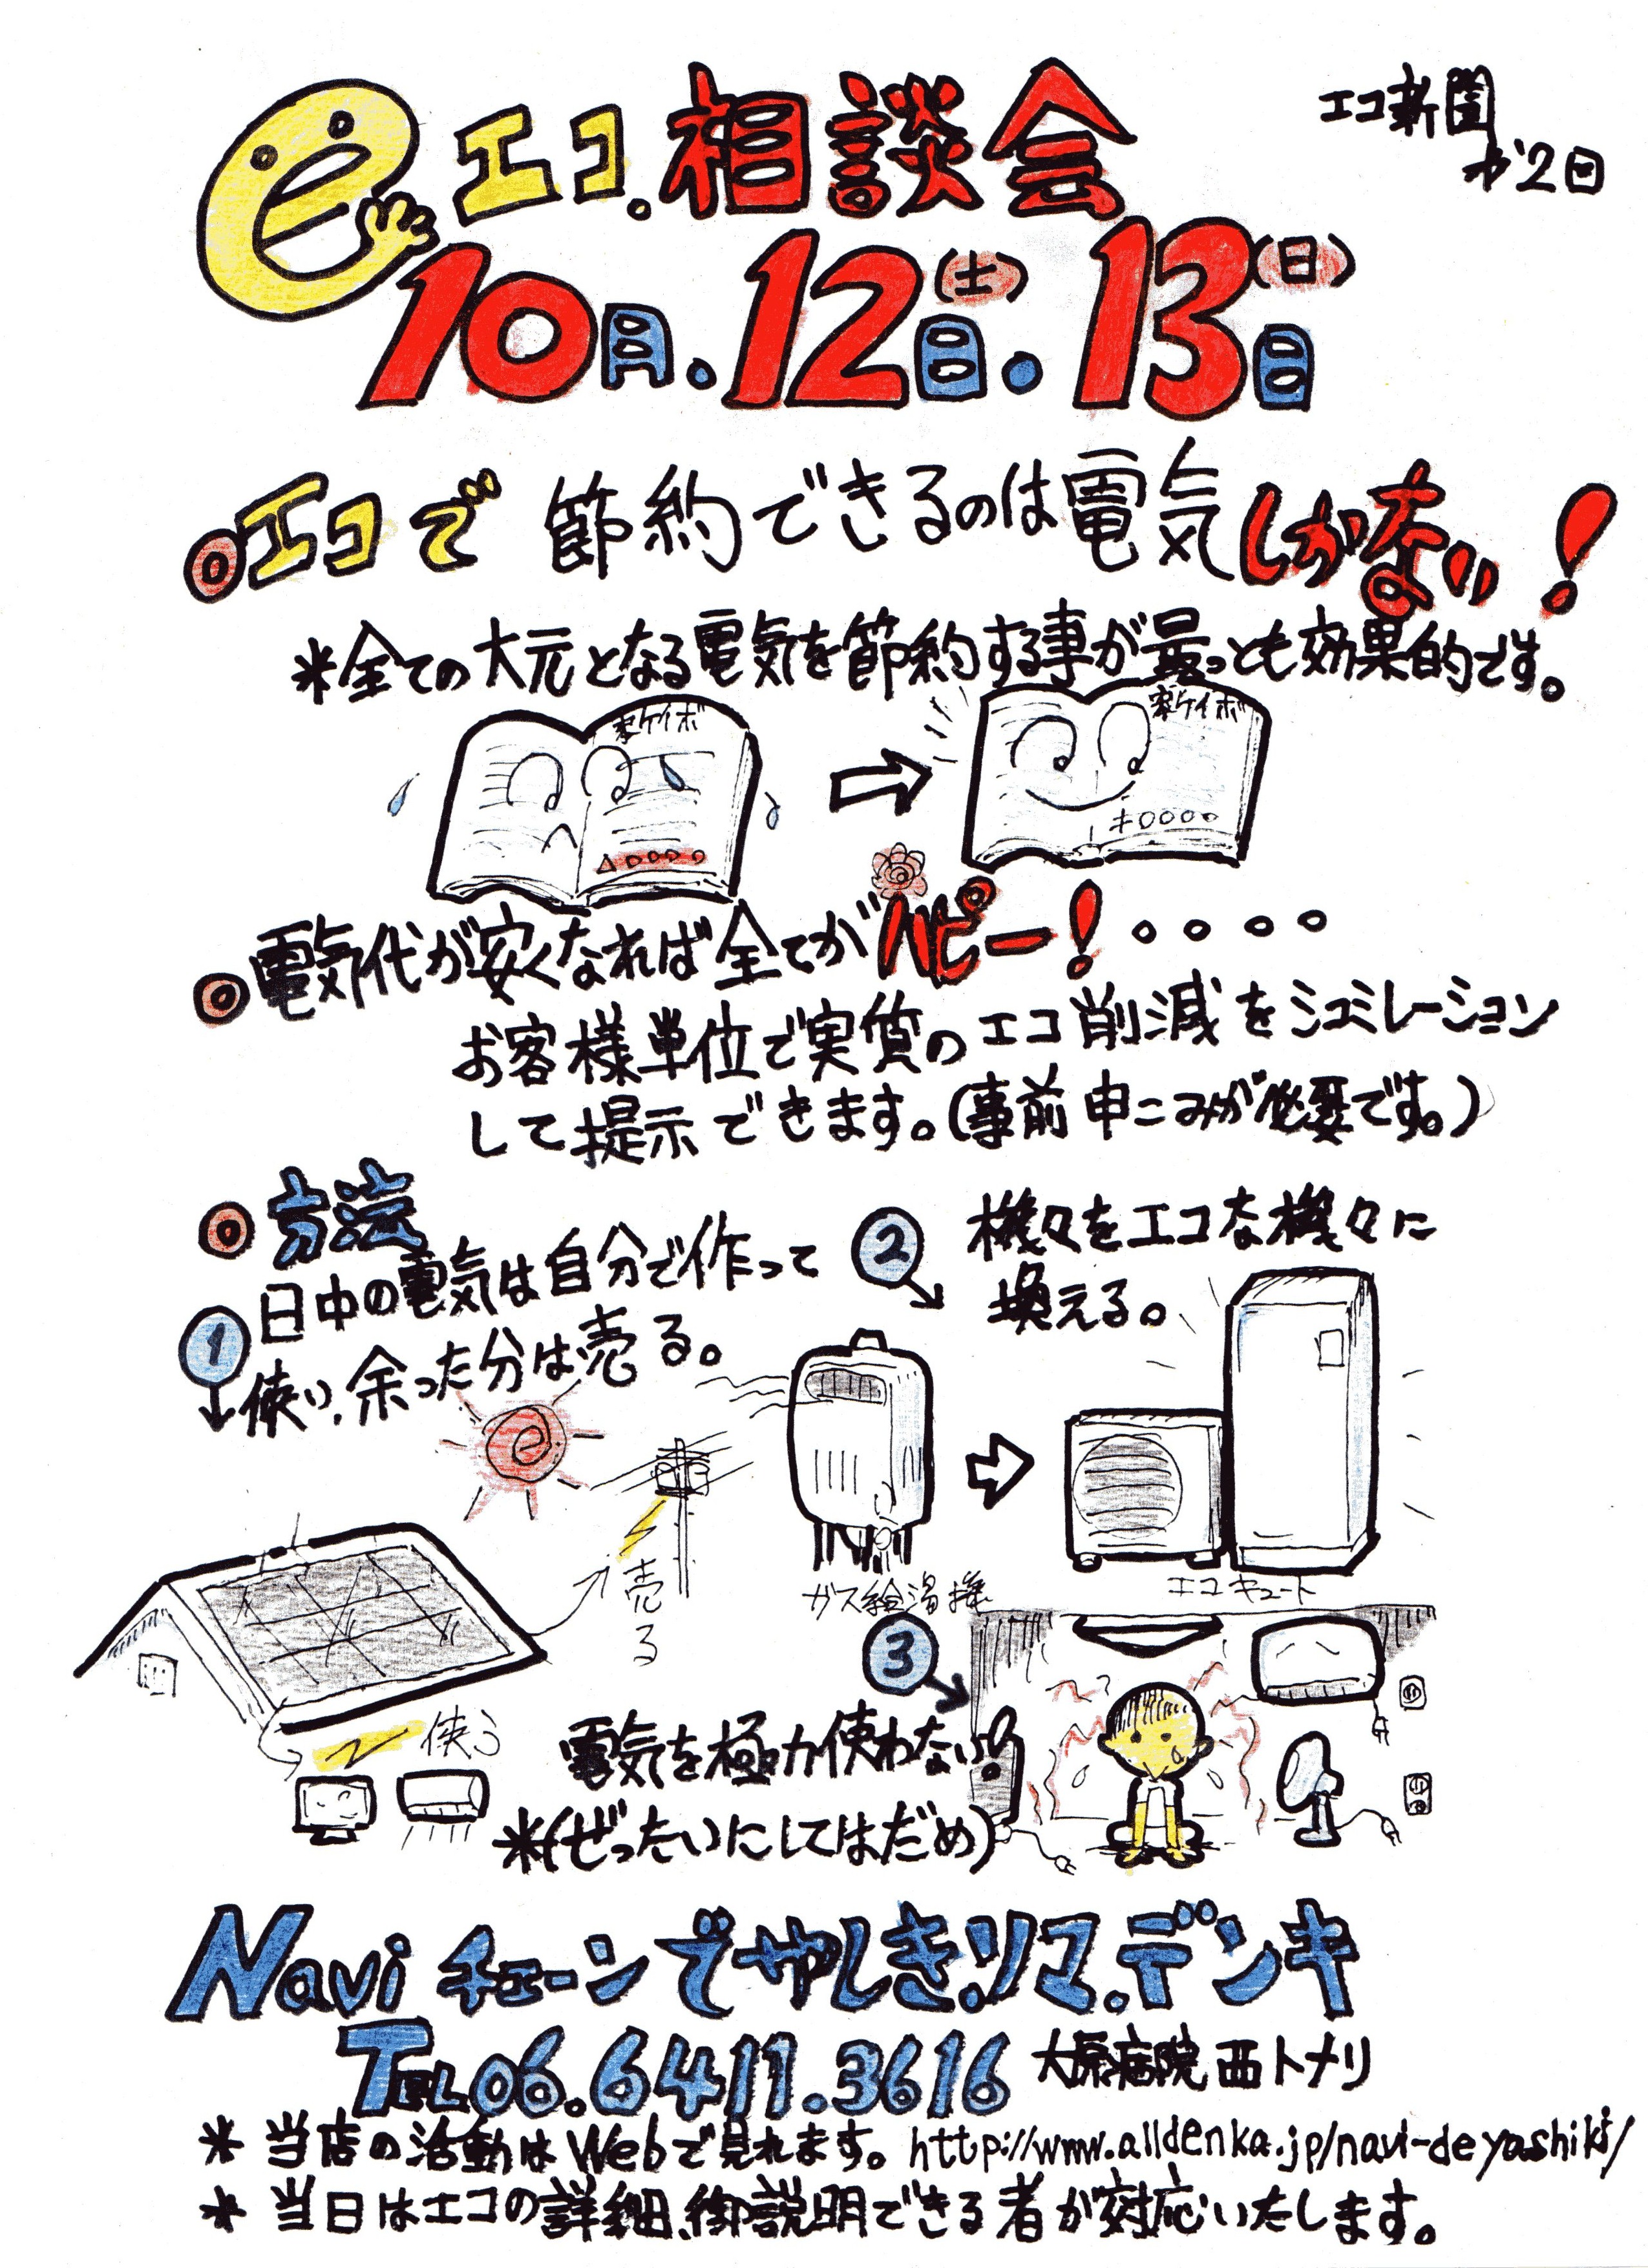 eエコ.相談会
エコ新聞
オ2日
10月.12日(土).13日(日)
◎エコで節約できるのは電気しかない!
*全ての大元となる電気を節約する事が最っとも効果的です。
家ケイボ
△0000
家ケイボ
+0000
◎電気代が安くなれば全てがハピー!。。。。
お客様単位で実質のエコ削減をシュミレーション
して提示できます。(事前申こみが必要です。)
◎方法
①日中の電気は自分で作って
使い、余った分は売る。
売る
使う
②機々をエコな機々に
換える。
ガス給湯機
エコキュート
③電気を極力使わない。
*(ぜったいにしてはだめ)
Naviチェーンでやしき.ソマ.デンキ
TEL06.6411.3616 大原病院西トナリ
*当店の活動はWebで見れます。http://www.alldenka.jp/navi-deyashiki/
*当日はエコの詳細、御説明できる者が対応いたします。